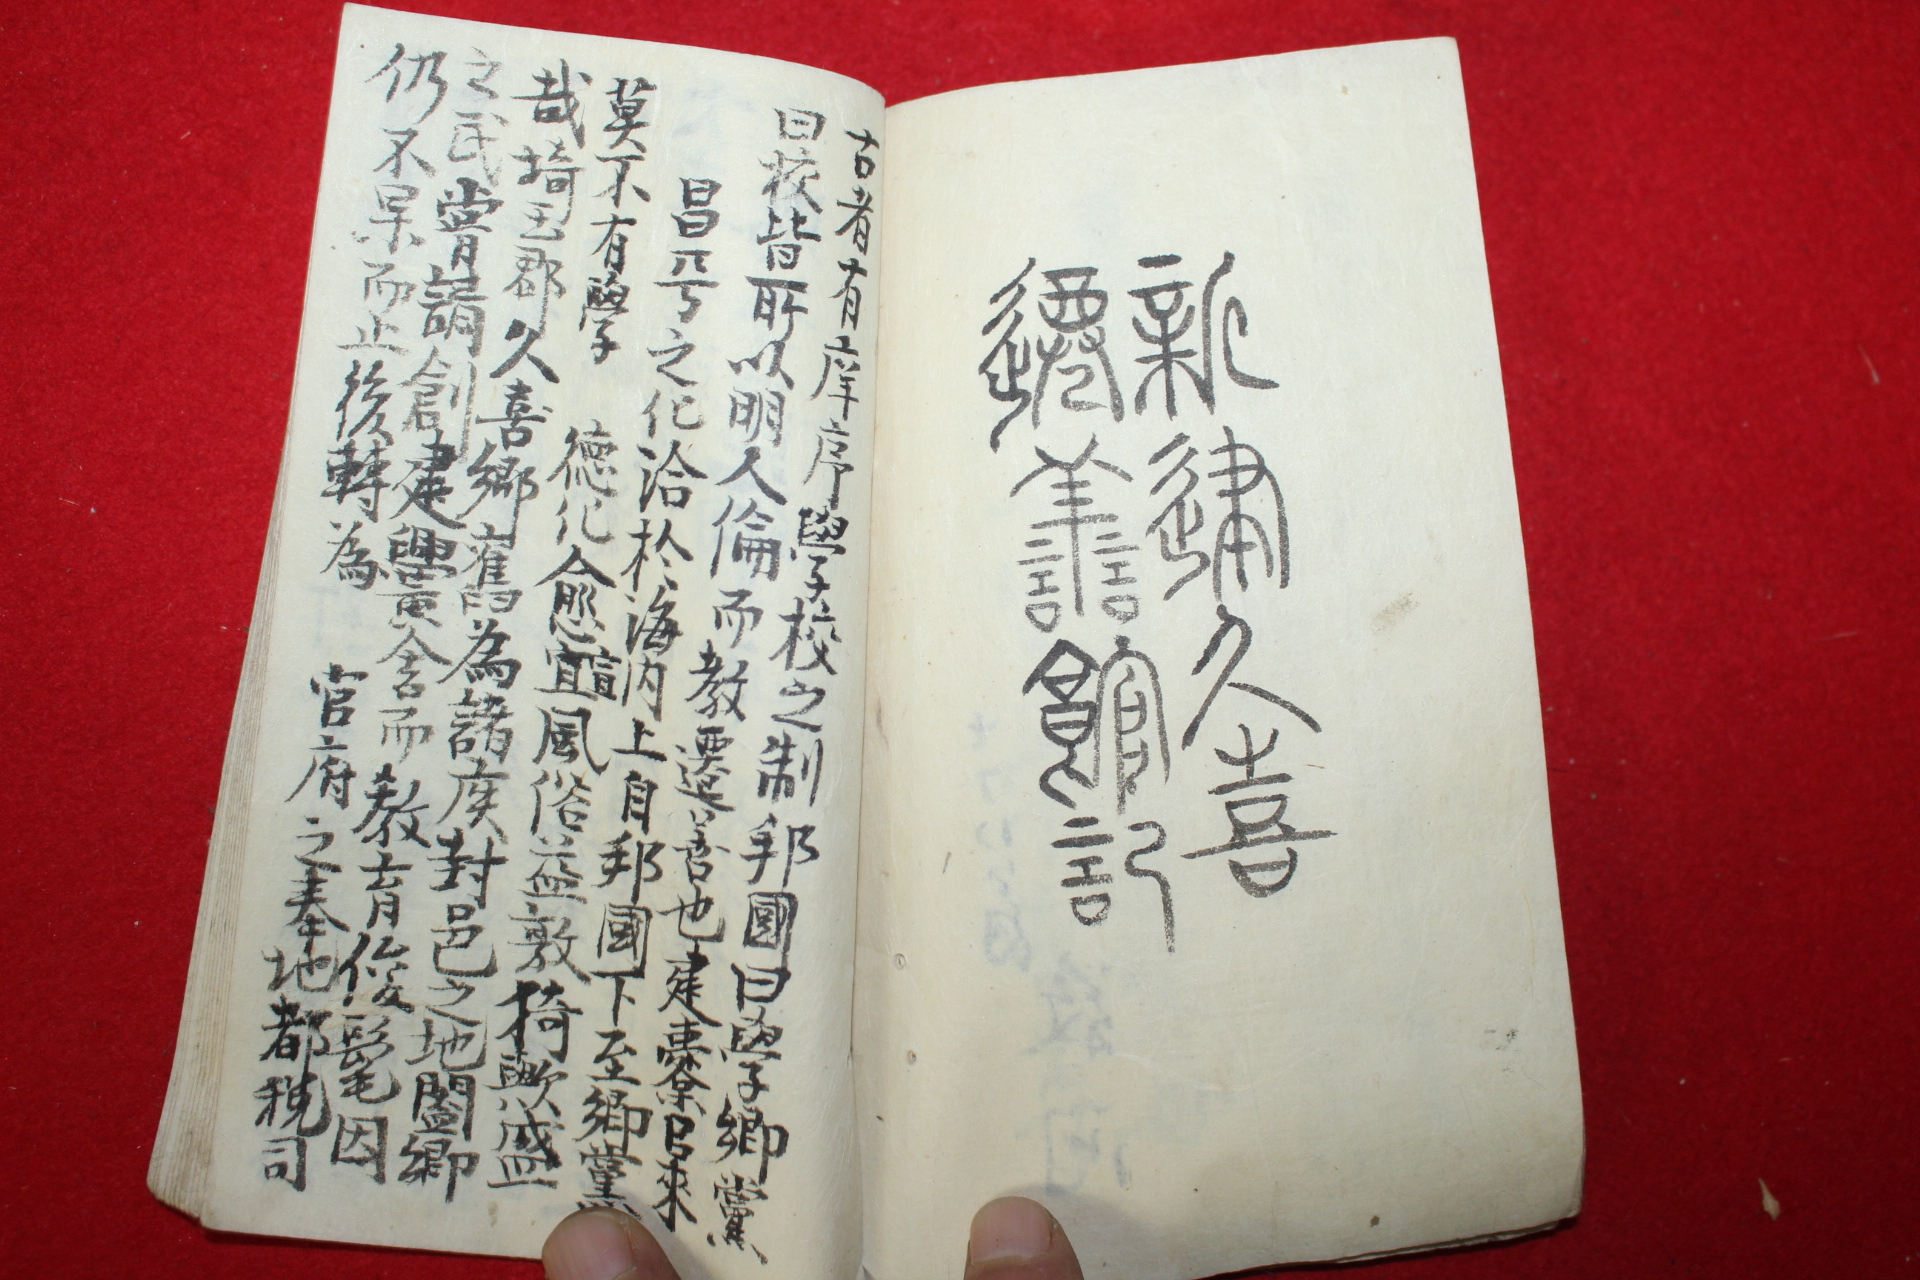 新建久喜
遷譱館記
古者有庠序學校之制邦國曰學鄉黨
曰校皆所以明人倫而教遷善也建櫜以來
昌平之化洽於海内上自邦國下至鄉黨
莫不有學 德化愈宣風俗益敦猗歟盛
哉埼玉郡久喜鄉舊為諸侯封邑之地闔鄉
之民嘗請創建黌舍而教育俊髦因
仍不果而止後轉為 官府之奉地都稅司